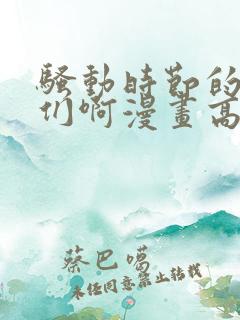 骚動時節的
们啊漫畫高
蔡巴噶
未经同意禁止转载